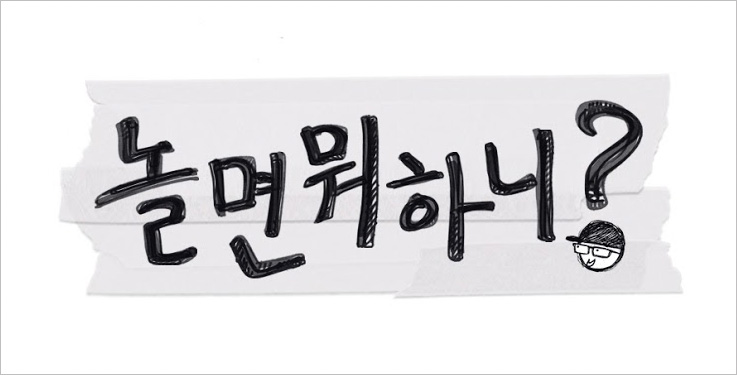 놀면뭐하니?